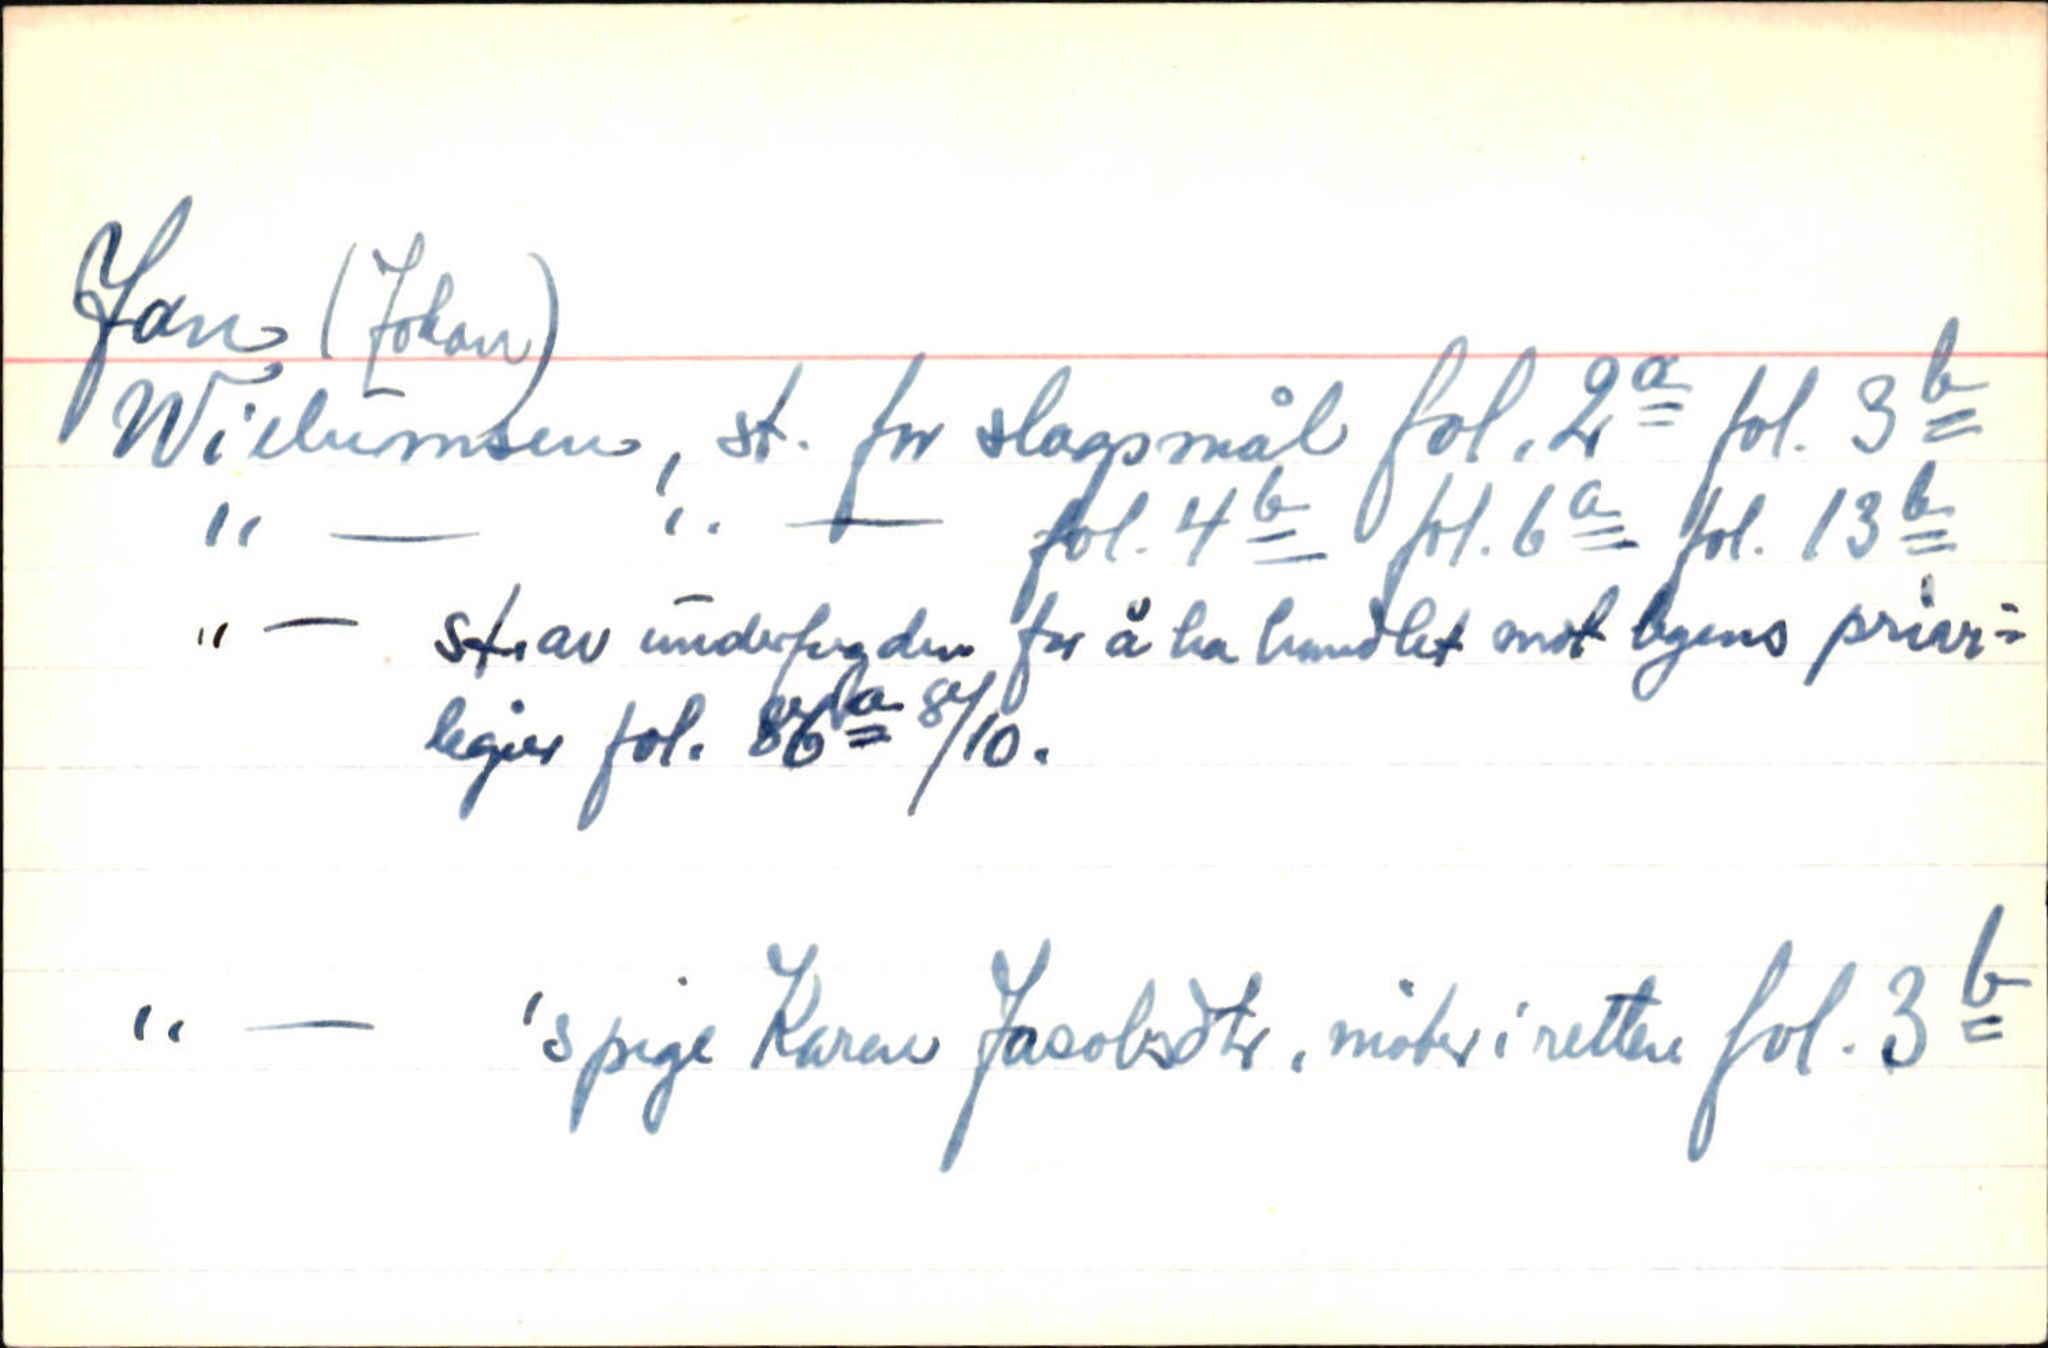 Jan (Johan)
Wielumsen, st. for slagsmål fol. 2a fol. 3b
" — " — fol. 4b fol. 6a fol. 13b
" — st. av underfogden for å ha handlet mot byens privi=
legier fol. 86a 8/10.
" — 's pige Karen Jacobsdtr, möter i retten fol. 3b